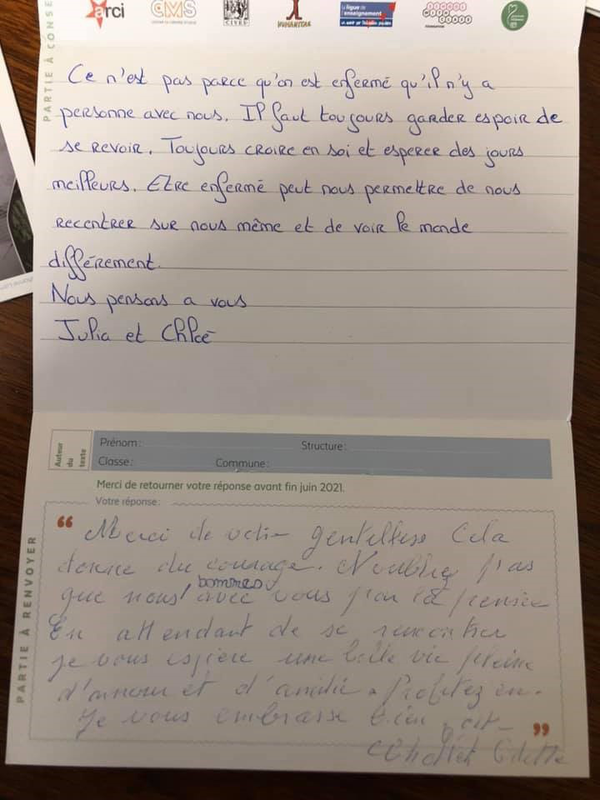 PARTIE À CONSE
arci
CMS
CIVES
HUMANITAS
la ligue de l'enseignement
Ce n'est pas parce qu'on est enfermé qu'il n'y a
personne avec nous. Il faut toujours garder espoir de
se revoir. Toujours croire en soi et esperer des jours
meilleurs. Etre enfermé peut nous permettre de nous
recentrer sur nous même et de voir le monde
différement.
Nous pensons a vous
Julia et Chloé
Auteur du texte
Prénom : Structure :
Classe : Commune :
Merci de retourner votre réponse avant fin juin 2021.
Votre réponse :
PARTIE À RENVOYER
“ Merci de votre gentillesse Cela
donne du courage. N'oubliez pas
que nous sommes avec vous par la pensée
En attendant de se rencontrer
je vous espère une belle vie pleine
d'amour et d'amitié. Profitez en.
Je vous embrasse bien fort ”
Odette